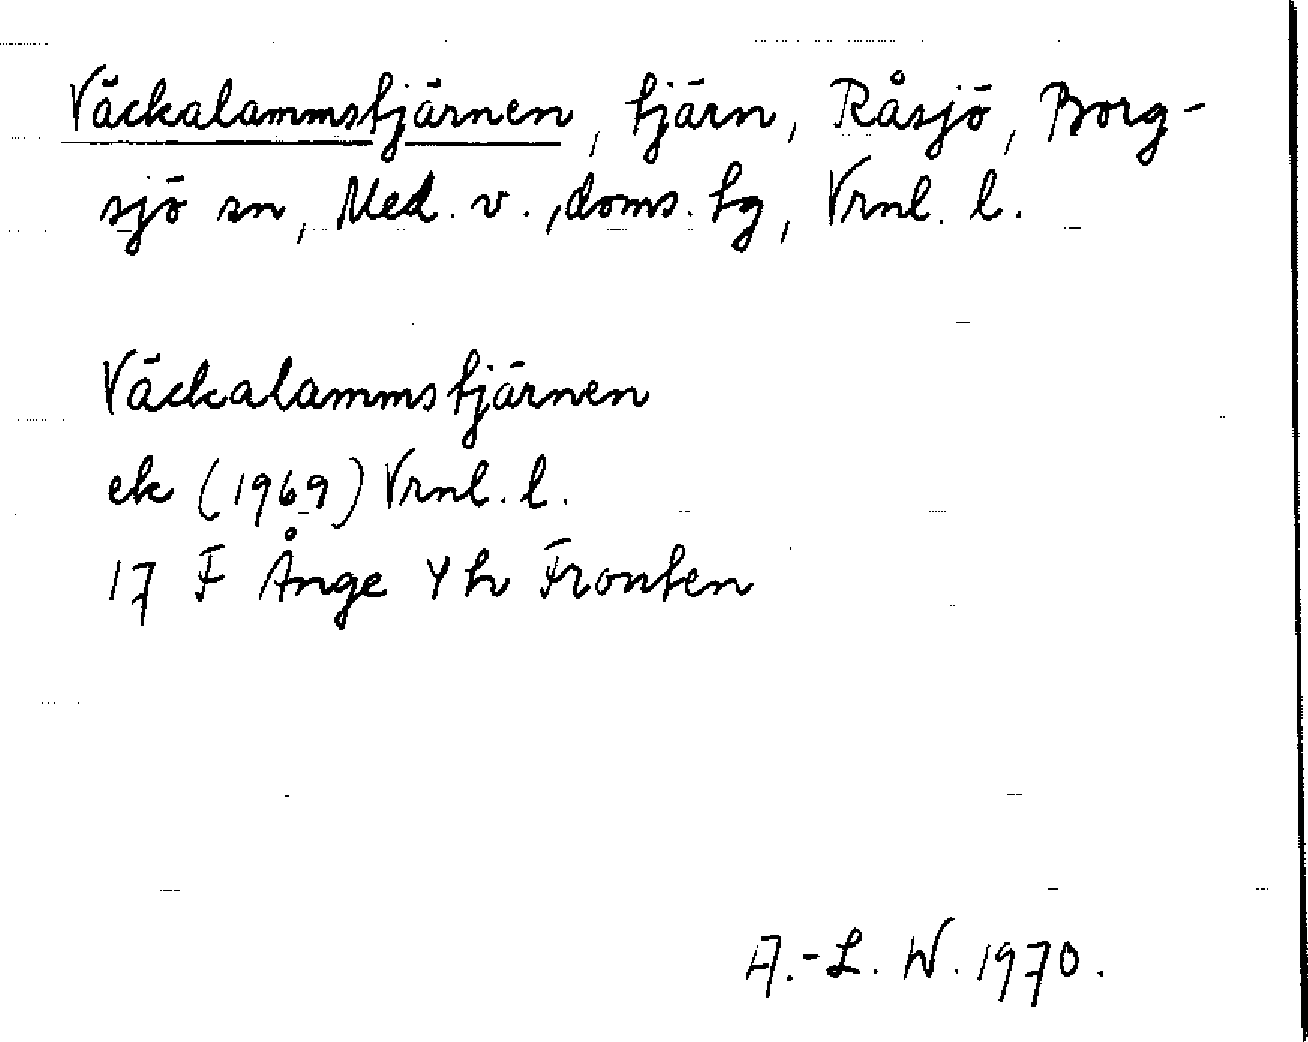 Väckalammstjärnen, tjärn, Råsjö, Borg-
sjö sn, Med. v., doms. tg, Vrnl. l.
Väckalammstjärnen
ek (1969) Vrnl. l.
17 F Ånge Y h Fronten
A.-L. W. 1970.